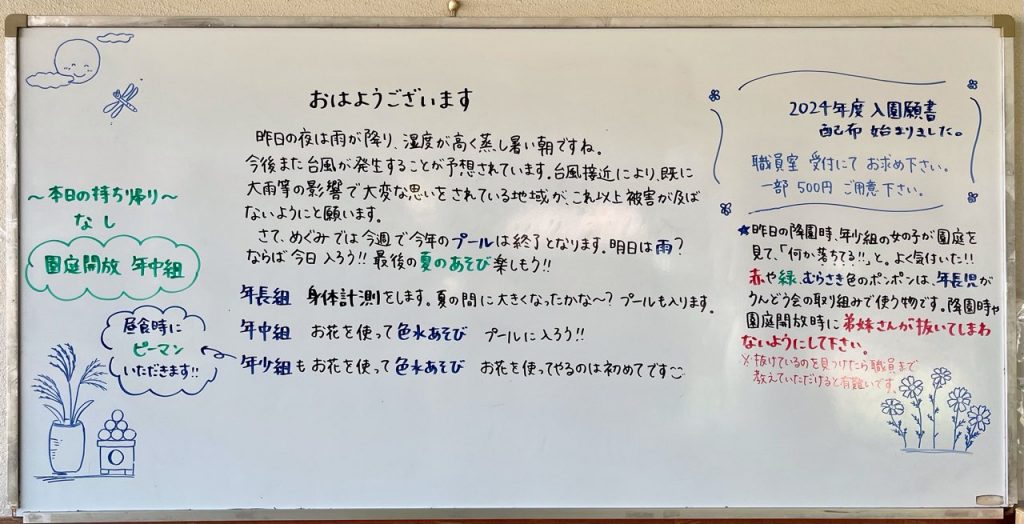 おはようございます
昨日の夜は雨が降り、湿度が高く蒸し暑い朝ですね。
今後また台風が発生することが予想されています。台風接近により、既に
大雨等の影響で大変な思いをされている地域が、これ以上被害が及ば
ないようにと願います。
さて、めぐみでは今週で今年のプールは終了となります。明日は雨?
ならば今日入ろう!! 最後の夏のあそび楽しもう!!
年長組 身体計測をします。夏の間に大きくなったかな〜? プールも入ります。
年中組 お花を使って色水あそび プールに入ろう!!
年少組も お花を使って色水あそび お花を使ってやるのは初めてです
〜本日の持ち帰り〜
なし
園庭開放 年中組
昼食時に
ピーマン
いただきます!!
2024年度 入園願書
配布 始まりました。
職員室 受付にて お求め下さい。
一部 500円 ご用意下さい。
★昨日の降園時、年少組の女の子が園庭を
見て、「何か落ちてる!!」と。よく気付いた!!
赤や緑、むらさき色のポンポンは、年長児が
うんどう会の取り組みで使う物です。降園時や
園庭開放時に弟妹さんが抜いてしまわ
ないようにして下さい。
※抜けているのを見つけたら職員まで
教えていただけると有難いです。